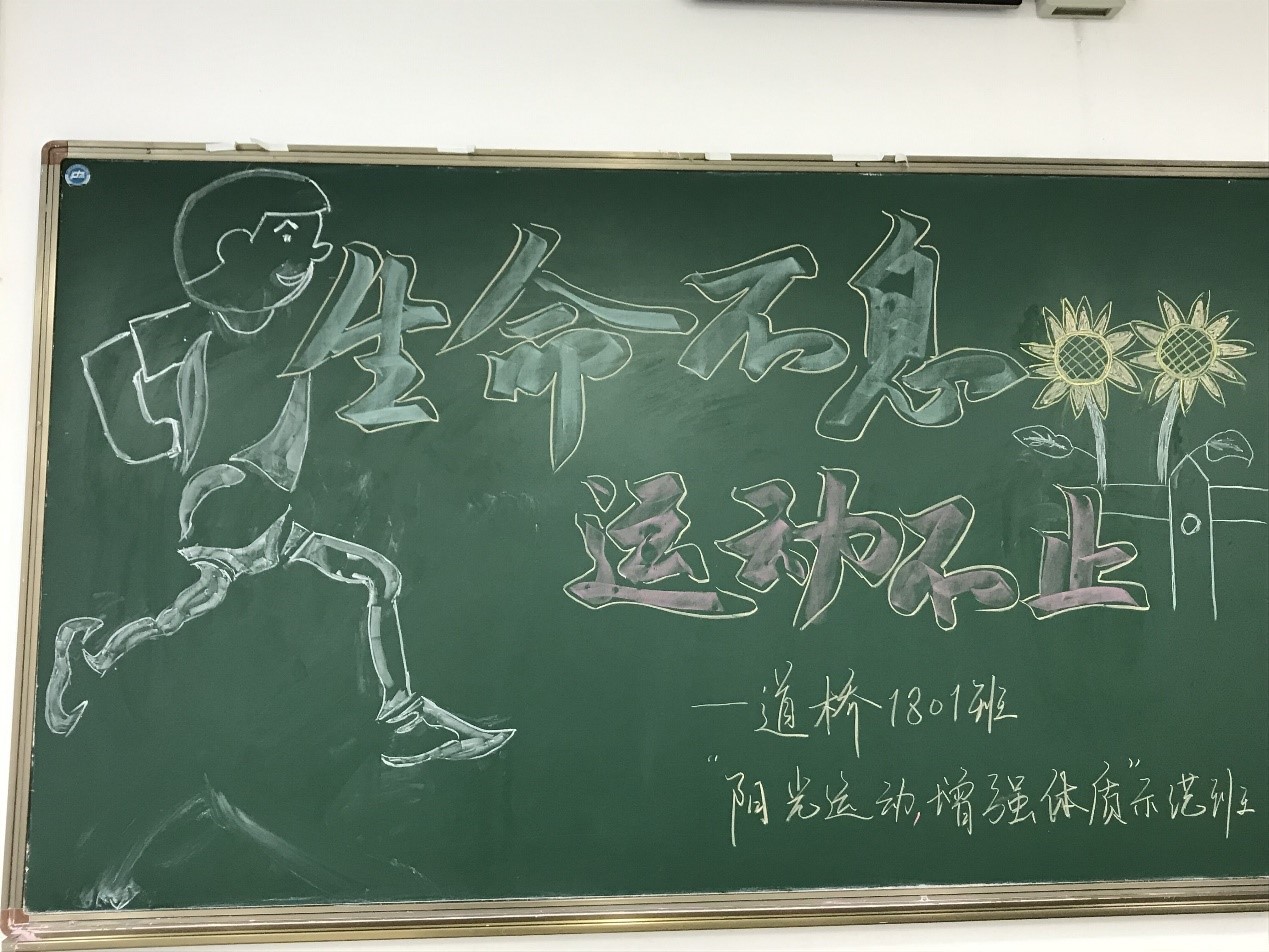 生命不息
运动不止
—道桥1801班
"阳光运动,增强体质"示范班